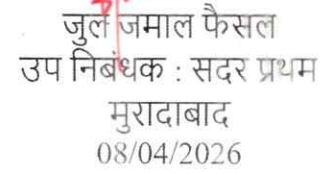 जुल जमाल फैसल
उप निबंधक : सदर प्रथम
मुरादाबाद
08/04/2026